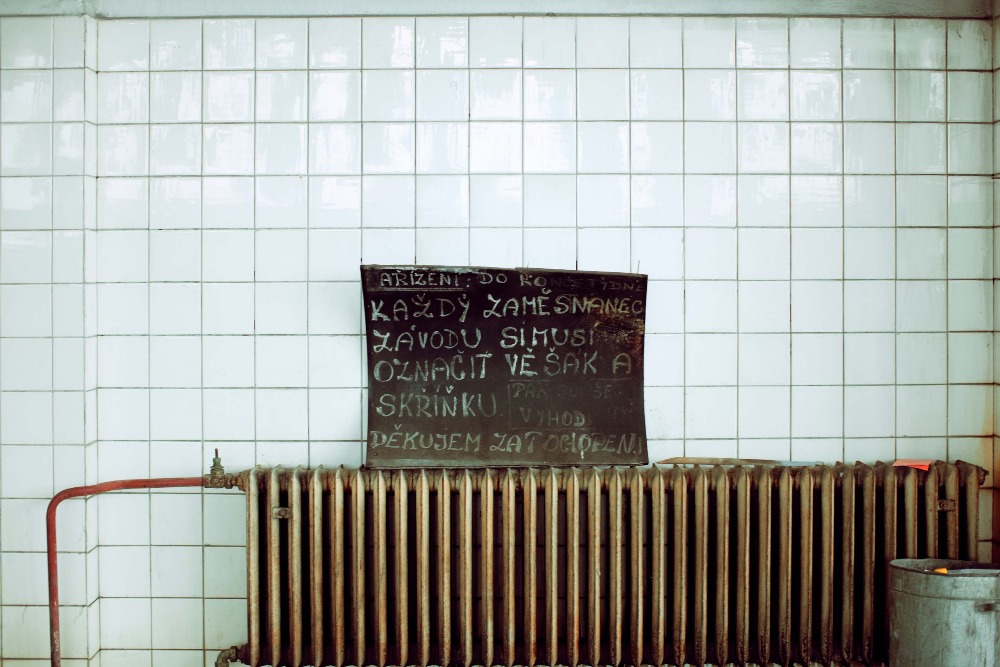 AŘÍZENÍ: DO KONCE TÝDNE
KAŽDÝ ZAMĚSNANEC
ZÁVODU SI MUSÍ
OZNAČIT VĚŠAK A
SKŘÍŇKU.
VYHOD
DĚKUJEM ZA POCHOPENÍ